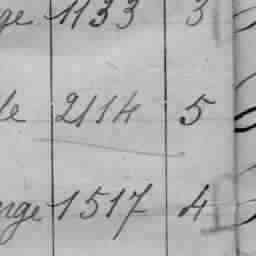 ge 1133 3
le 2114 5
nge 1517 4